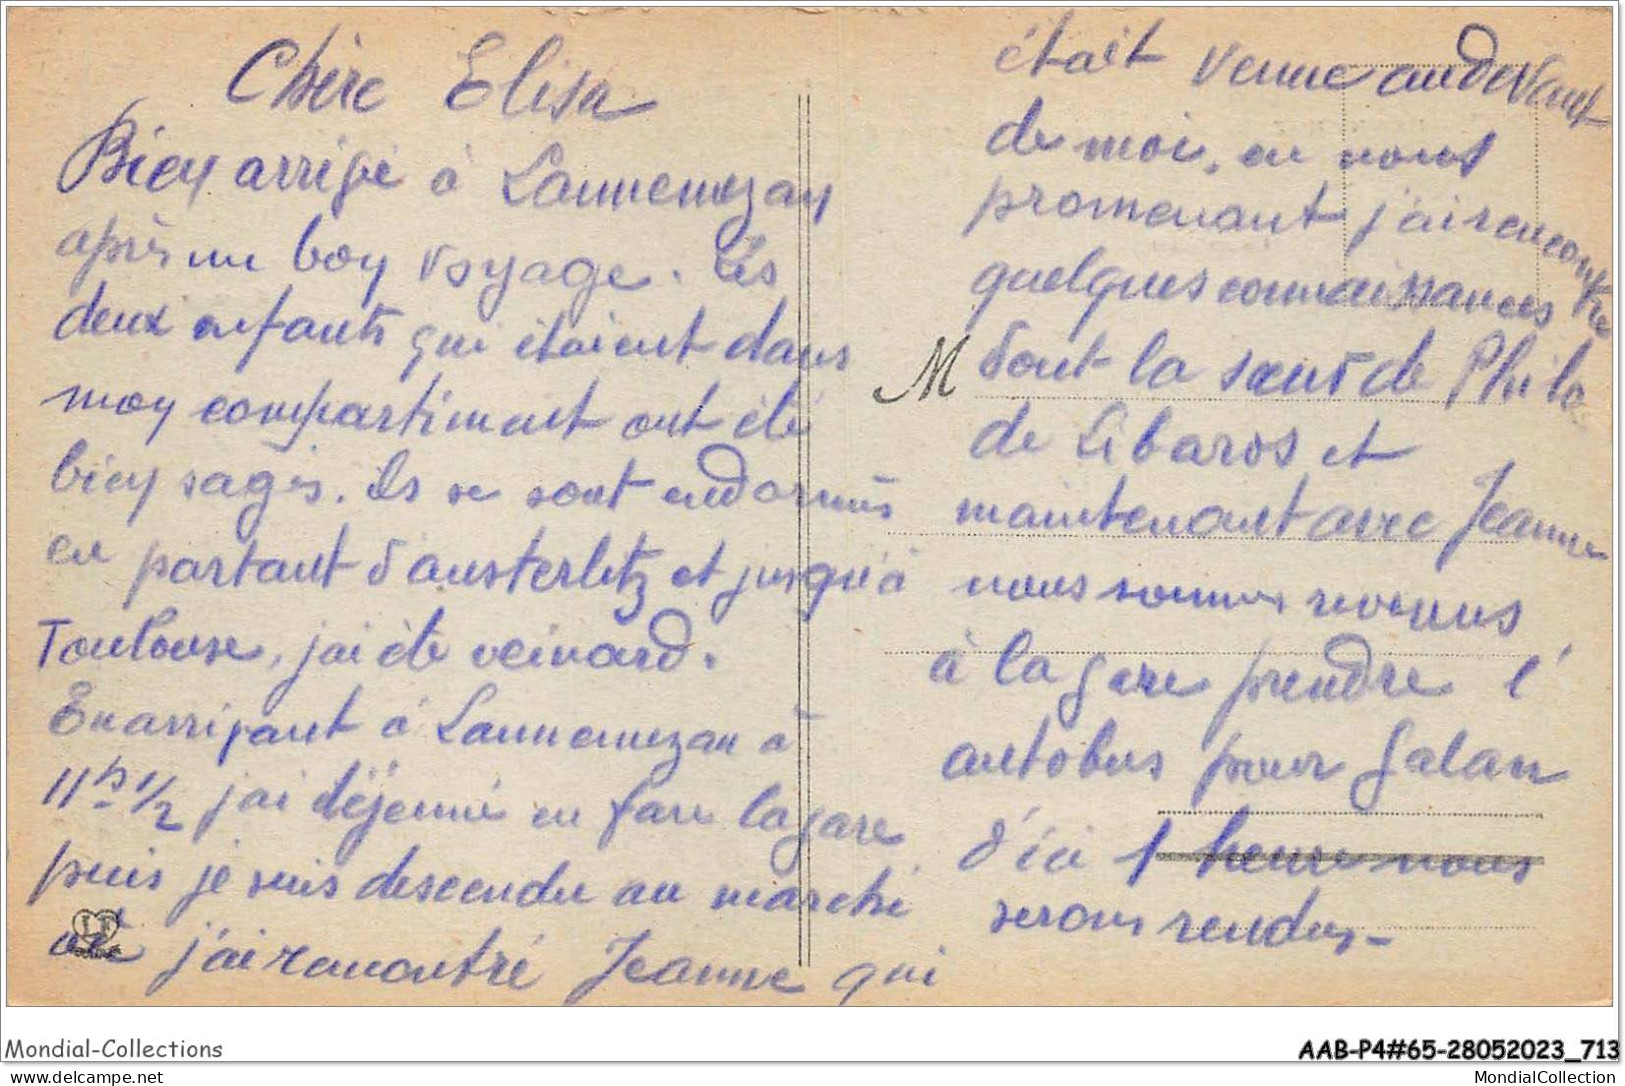 Chère Elisa
Bien arrivé à Lannemezan
après un bon voyage. Les
deux enfants qui étaient dans
mon compartiment ont été
bien sages. Ils se sont endormis
en partant d'austerlitz et jusqu'à
Toulouse, j'ai été veinard.
En arrivant à Lannemezan à
11h 1/2 j'ai déjeuné en face la gare
puis je suis descendu au marché
où j'ai rencontré Jeanne qui
était venue au devant
de moi, en nous
promenant j'ai rencontré
quelques connaissances
M
dont la soeur de Philo
de Libaros et
maintenant avec Jeanne
nous sommes revenus
à la gare prendre l'
autobus pour Galan
d'ici 1 heure nous
serons rendus-
Mondial-Collections
AAB-P4#65-28052023_713
delcampe.net
MondialCollection